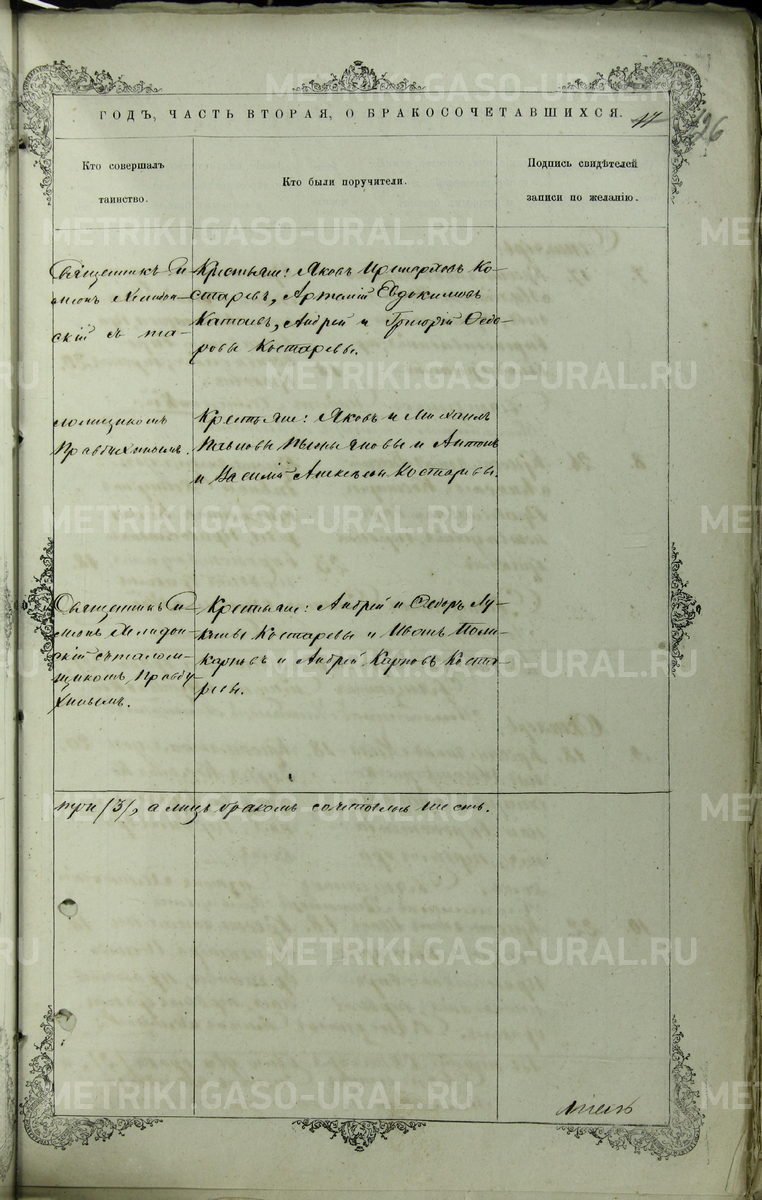 ГОДЪ, ЧАСТЬ ВТОРАЯ, О БРАКОСОЧЕТАВШИХСЯ.
17
126
Кто совершалъ
таинство.
Кто были поручители.
Подпись свидѣтелей
записи по желанію.
Священникъ Си-
меонъ
скій съ пса-
Крестьяне: Яковъ Ко-
старевъ, Артемій Евдокимовъ
Катаевъ, Андрей и Григорій Ѳедо-
ровы Костаревы.
ломщикомъ
Правдухинымъ.
Крестьяне: Яковъ и Михаилъ
и Антонъ
и Василій Алексѣевы Костаревы.
Священникъ Си-
меонъ Хелидон-
скій съ псалом-
щикомъ Правду-
хинымъ.
Крестьяне: Андрей и Ѳедоръ Лу-
кины Костаревы и Иванъ Поли-
карповъ и Андрей Карповъ Коста-
ревы.
три /3/, а лицъ бракомъ сочеталось шесть.
METRIKI.GASO-URAL.RU